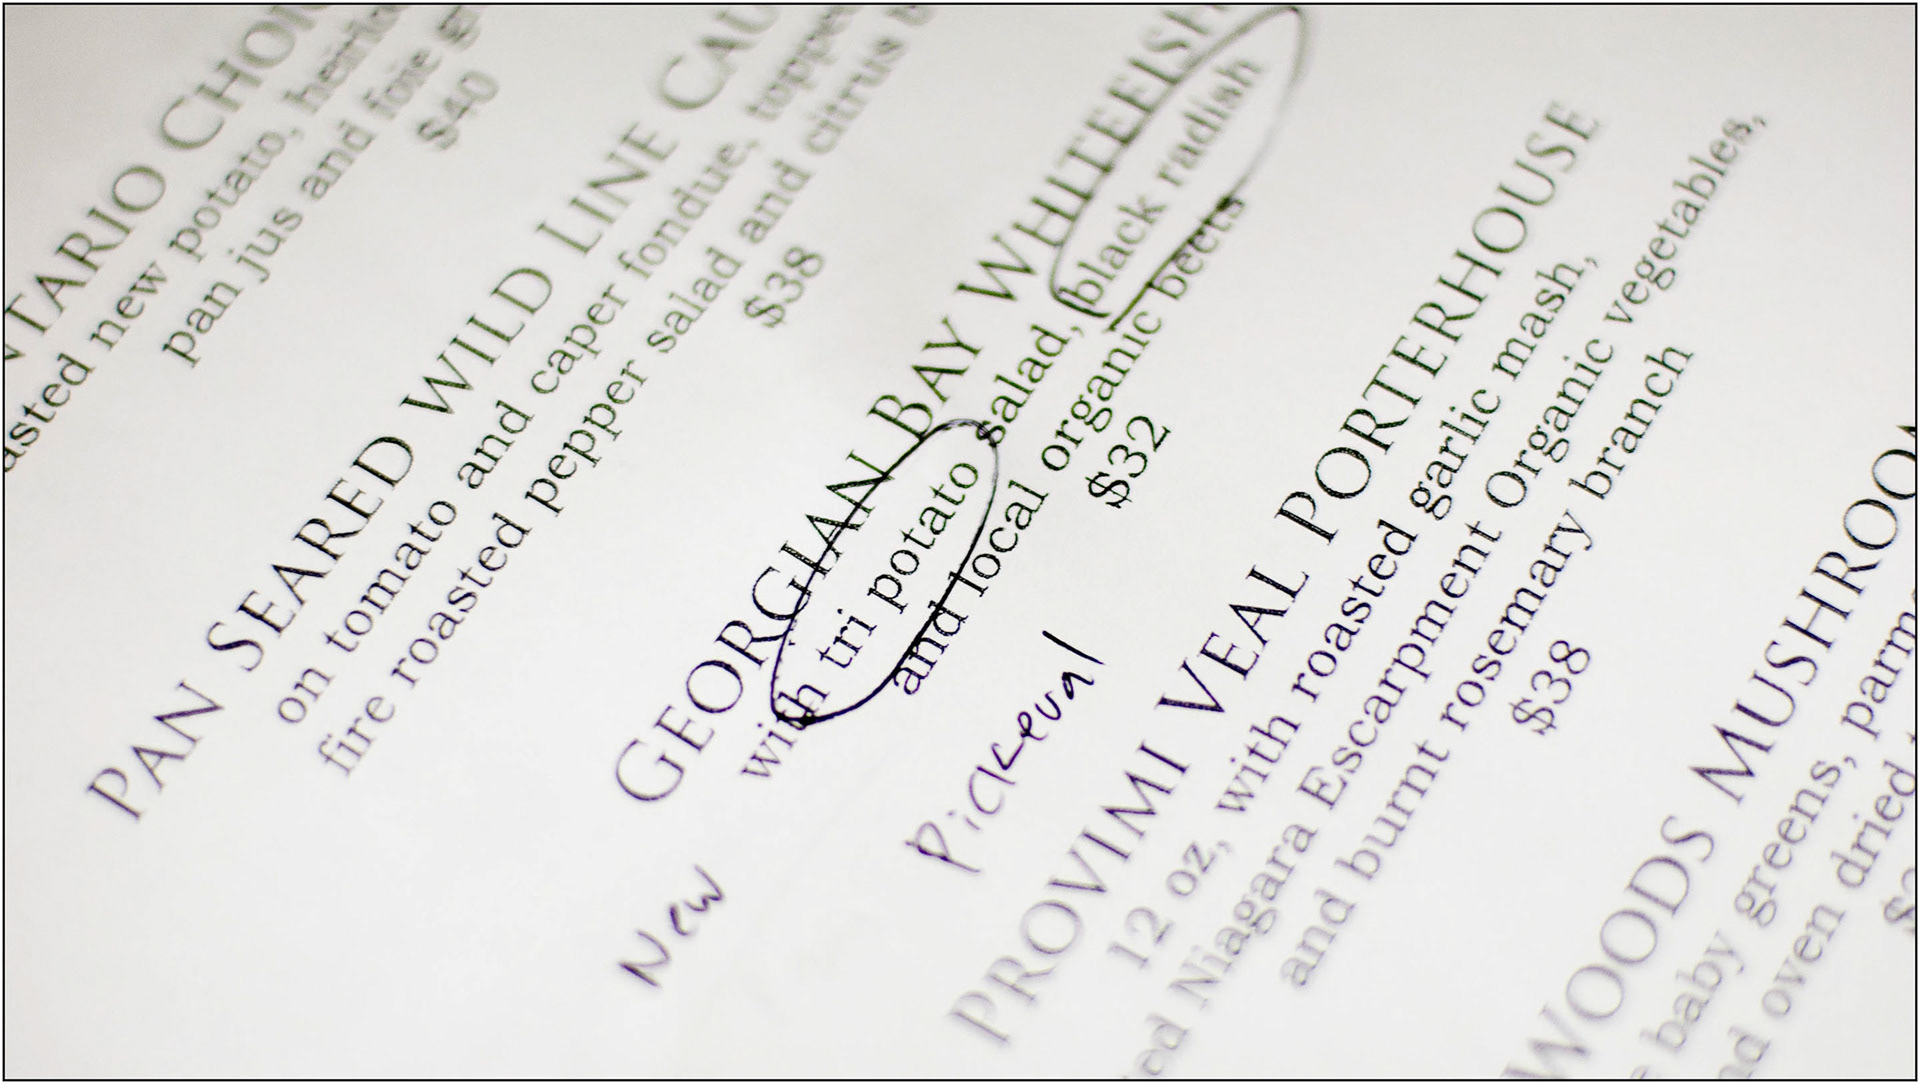 TARIO CHO
asted new potato,
pan jus and foie
$40
PAN SEARED WILD LINE CAU
on tomato and caper fondue, topped
fire roasted pepper salad and citrus
$38
GEORGIAN BAY WHITEFISH
with tri potato salad, black radish
and local organic beets
$32
New
Pickeral
PROVIMI VEAL PORTERHOUSE
12 oz, with roasted garlic mash,
ed Niagara Escarpment Organic vegetables,
and burnt rosemary branch
$38
WOODS MUSHROO
baby greens, parm
nd oven dried